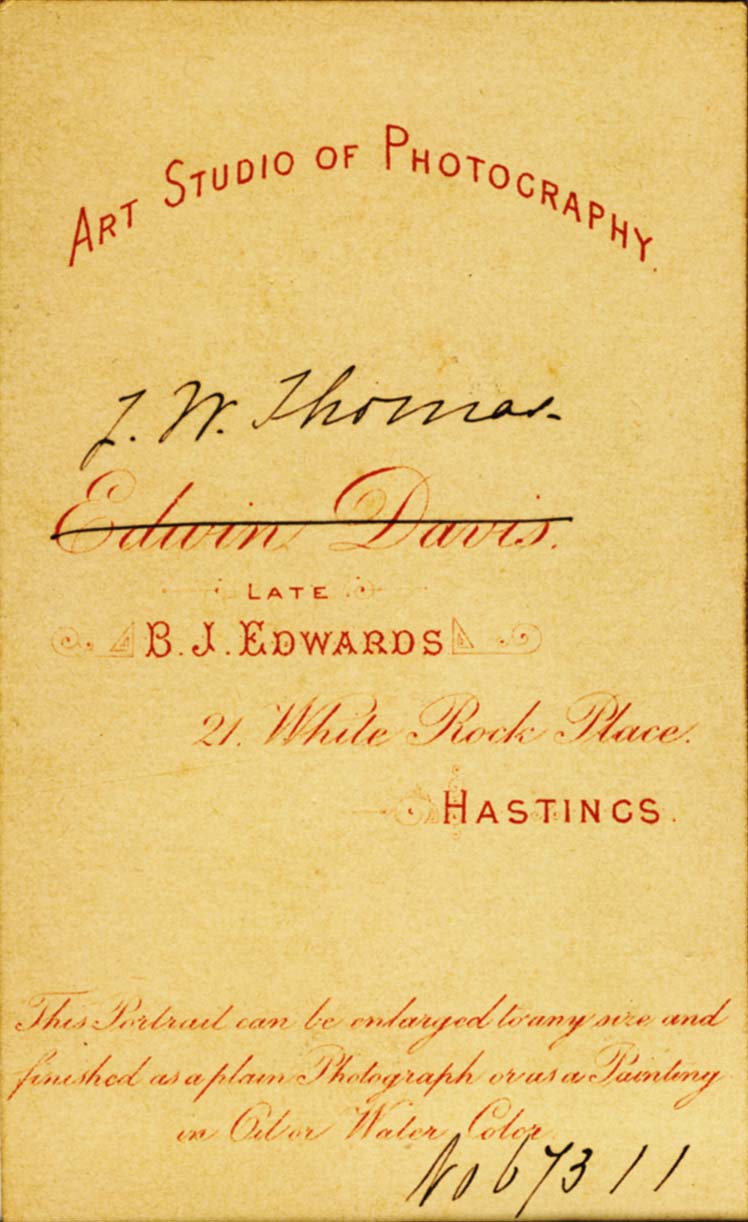 ART STUDIO OF PHOTOGRAPHY.
J. W. Thomas.
Edwin Davis.
LATE
B. J. EDWARDS
21. White Rock Place.
HASTINGS.
This Portrait can be enlarged to any size and
finished as a plain Photograph or as a Painting
in Oil or Water Color
No 67311